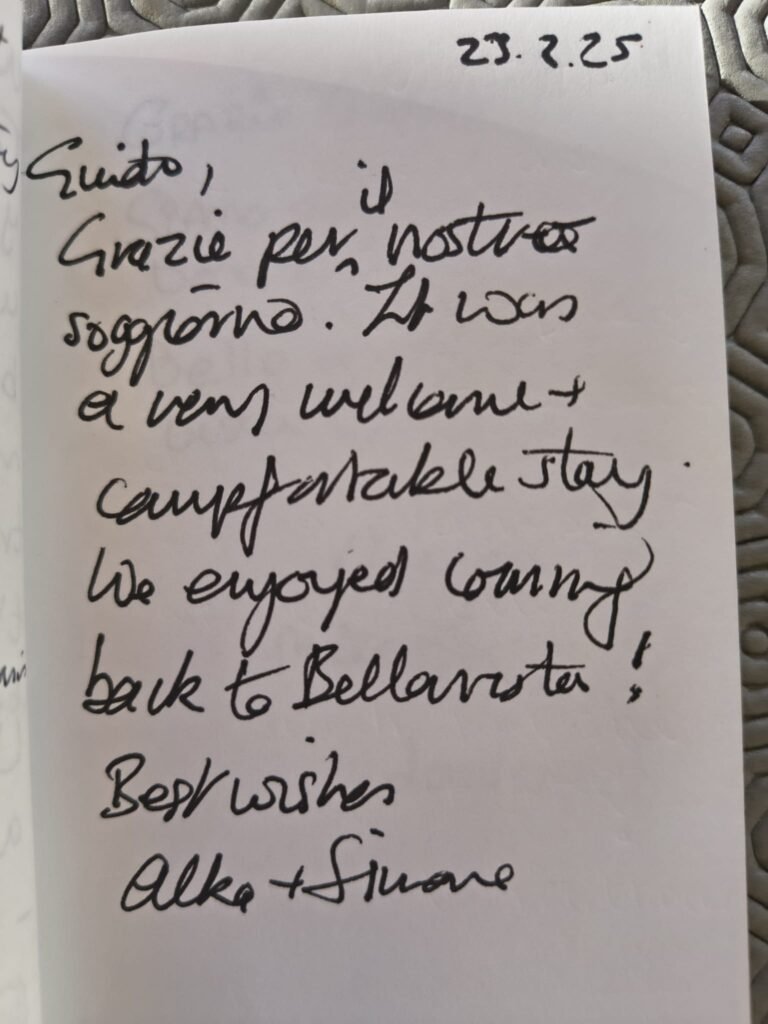 23.2.25
Guido,
Grazie per il nostro
soggiorno. It was
a very welcome +
compfortable stay.
We enjoyed coming
back to Bellavista!
Best wishes
Alka + Simone